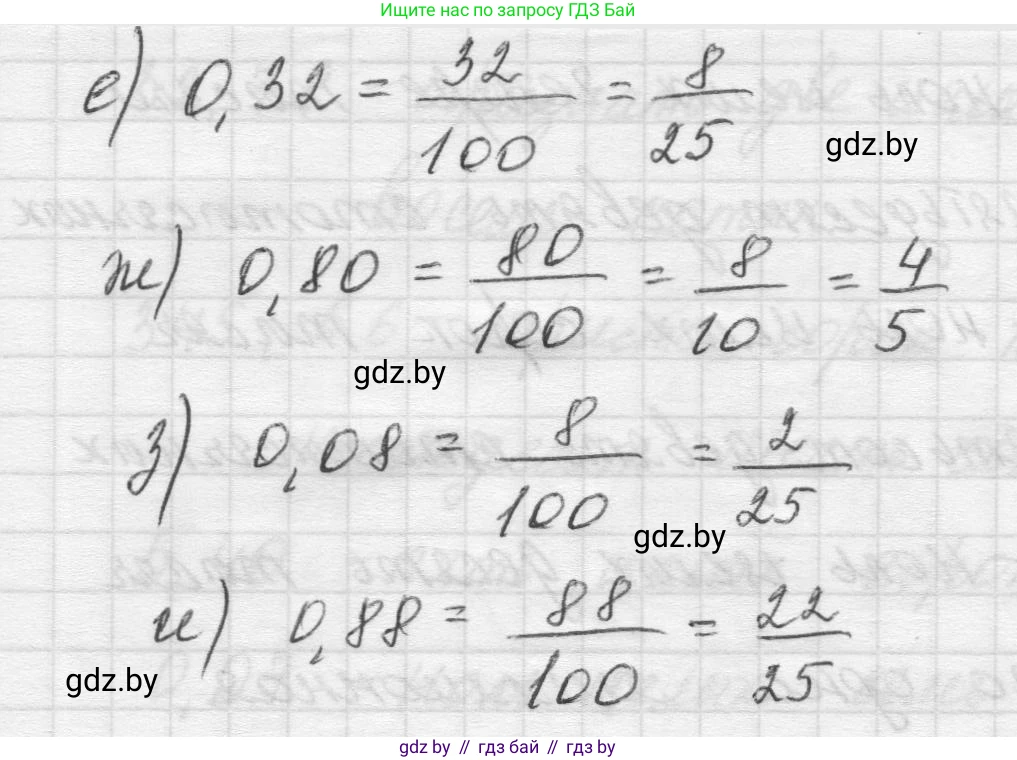 Ищите нас по запросу ГДЗ Бай
е) 0,32 = 32/100 = 8/25
gdz.by
ж) 0,80 = 80/100 = 8/10 = 4/5
gdz.by
з) 0,08 = 8/100 = 2/25
gdz.by
и) 0,88 = 88/100 = 22/25
gdz.by
gdz.by // гдз бай // гдз by